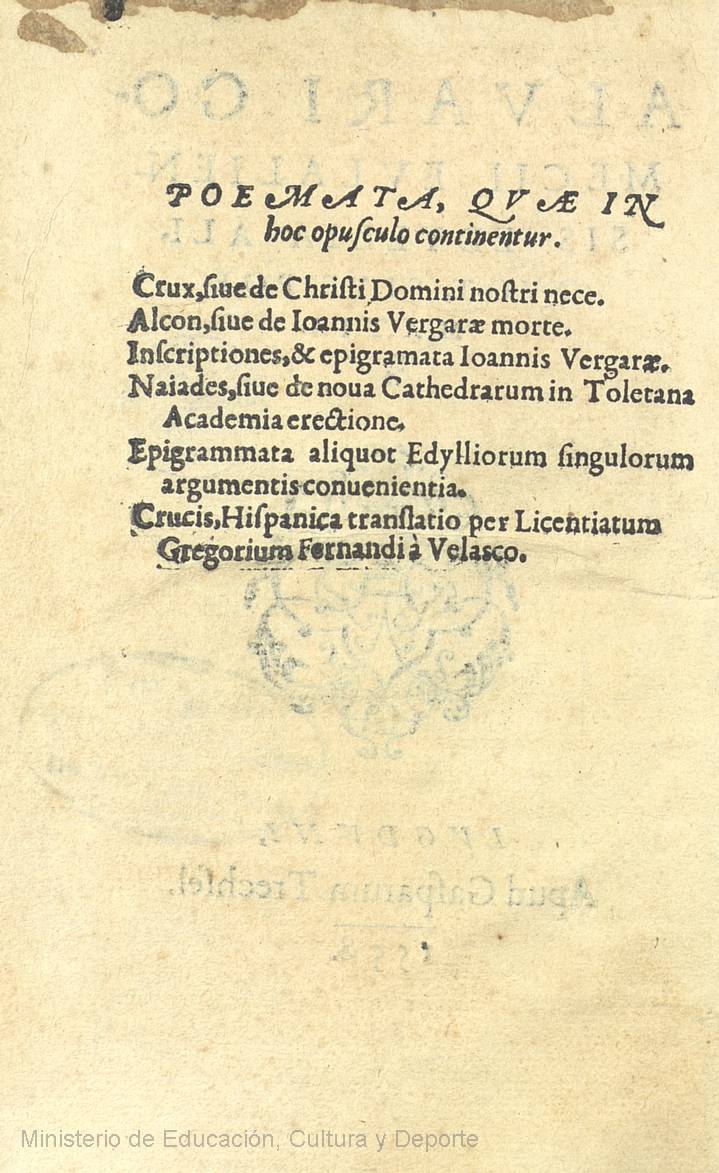 POEMATA, QVÆ IN
hoc opuſculo continentur.
Crux, ſiue de Chriſti Domini noſtri nece.
Alcon, ſiue de Ioannis Vergaræ morte.
Inſcriptiones, & epigramata Ioannis Vergaræ.
Naiades, ſiue de noua Cathedrarum in Toletana
Academia erectione.
Epigrammata aliquot Edylliorum ſingulorum
argumentis conuenientia.
Crucis, Hiſpanica tranſlatio per Licentiatum
Gregorium Fernandi à Velaſco.
LVGDVNI,
Apud Gaſparum Trechſel.
1558.
Ministerio de Educación, Cultura y Deporte